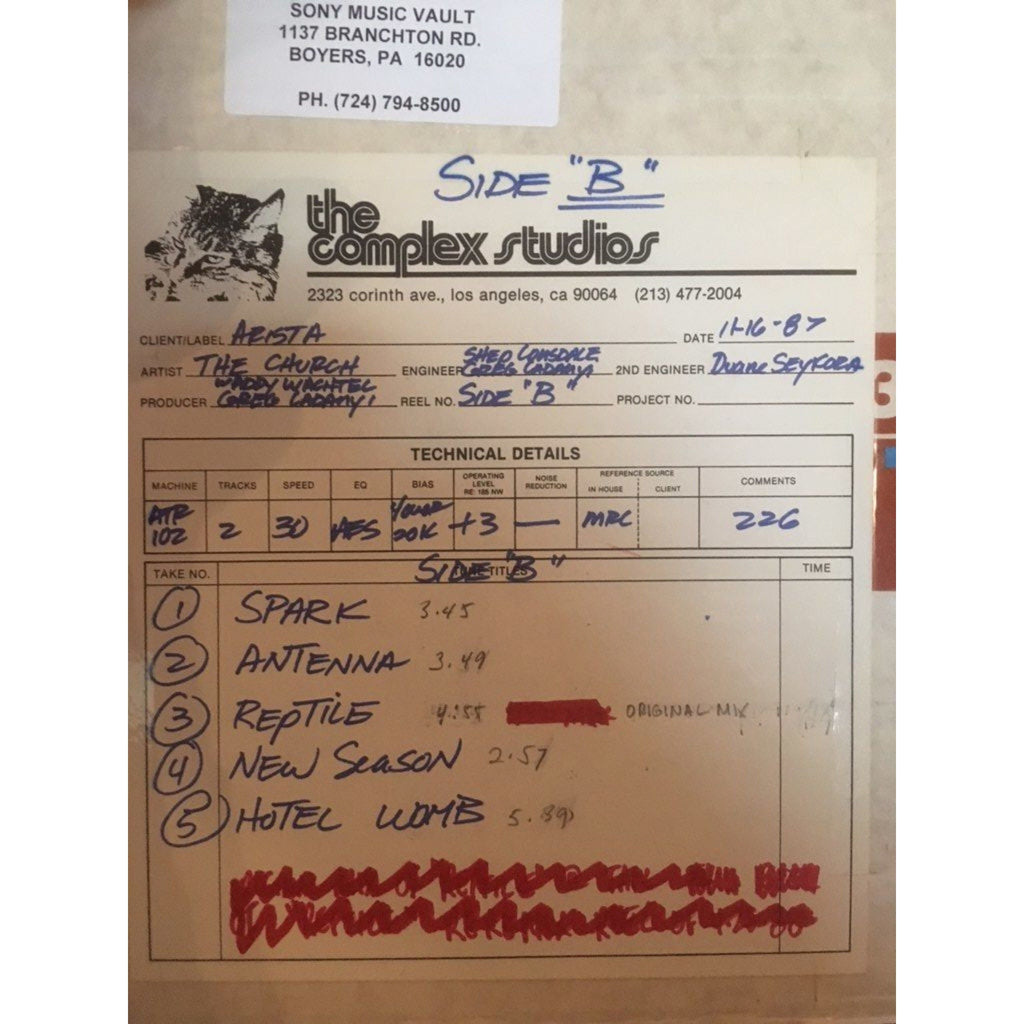 SONY MUSIC VAULT
1137 BRANCHTON RD.
BOYERS, PA 16020
PH. (724) 794-8500
SIDE "B"
the
complex studios
2323 corinth ave., los angeles, ca 90064 (213) 477-2004
CLIENT/LABEL ARISTA DATE 11-16-87
ARTIST THE CHURCH ENGINEER SHEP LONSDALE GREG LADANYI 2ND ENGINEER Duane SEYKORA
PRODUCER WADDY WACHTEL GREG LADANYI REEL NO. SIDE "B" PROJECT NO.
TECHNICAL DETAILS
MACHINE TRACKS SPEED EQ BIAS OPERATING LEVEL RE: 185 NW NOISE REDUCTION REFERENCE SOURCE IN HOUSE CLIENT COMMENTS
ATR 102 2 30 AES 20K +3 — MRL 226
TAKE NO. SIDE "B" TITLES TIME
1 SPARK 3.45
2 ANTENNA 3.49
3 REPTILE 4:55 ORIGINAL MIX
4 NEW SEASON 2.57
5 HOTEL WOMB 5.39